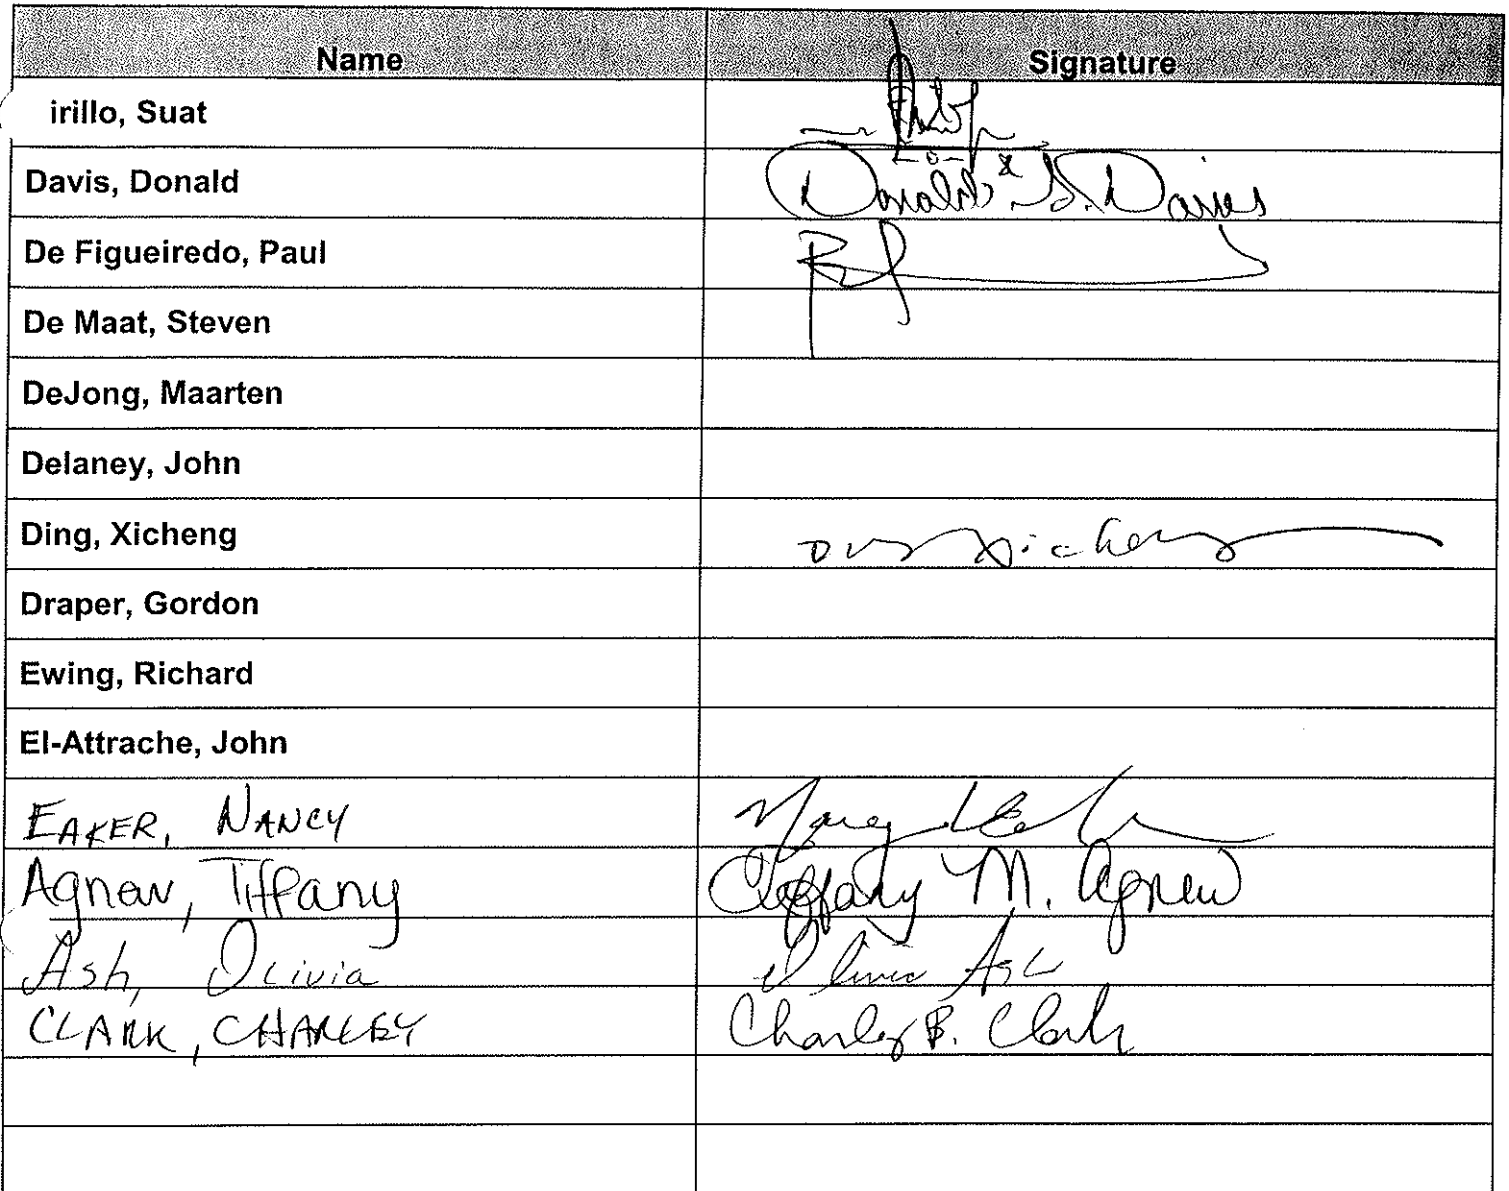 Name Signature
irillo, Suat
Davis, Donald Donald S. Davis
De Figueiredo, Paul
De Maat, Steven
DeJong, Maarten
Delaney, John
Ding, Xicheng Ding Xicheng
Draper, Gordon
Ewing, Richard
El-Attrache, John
EAKER, NANCY Nancy
Agnew, Tiffany Tiffany M. Agnew
Ash, Olivia Olivia Ash
CLARK, CHARLEY Charley B. Clark